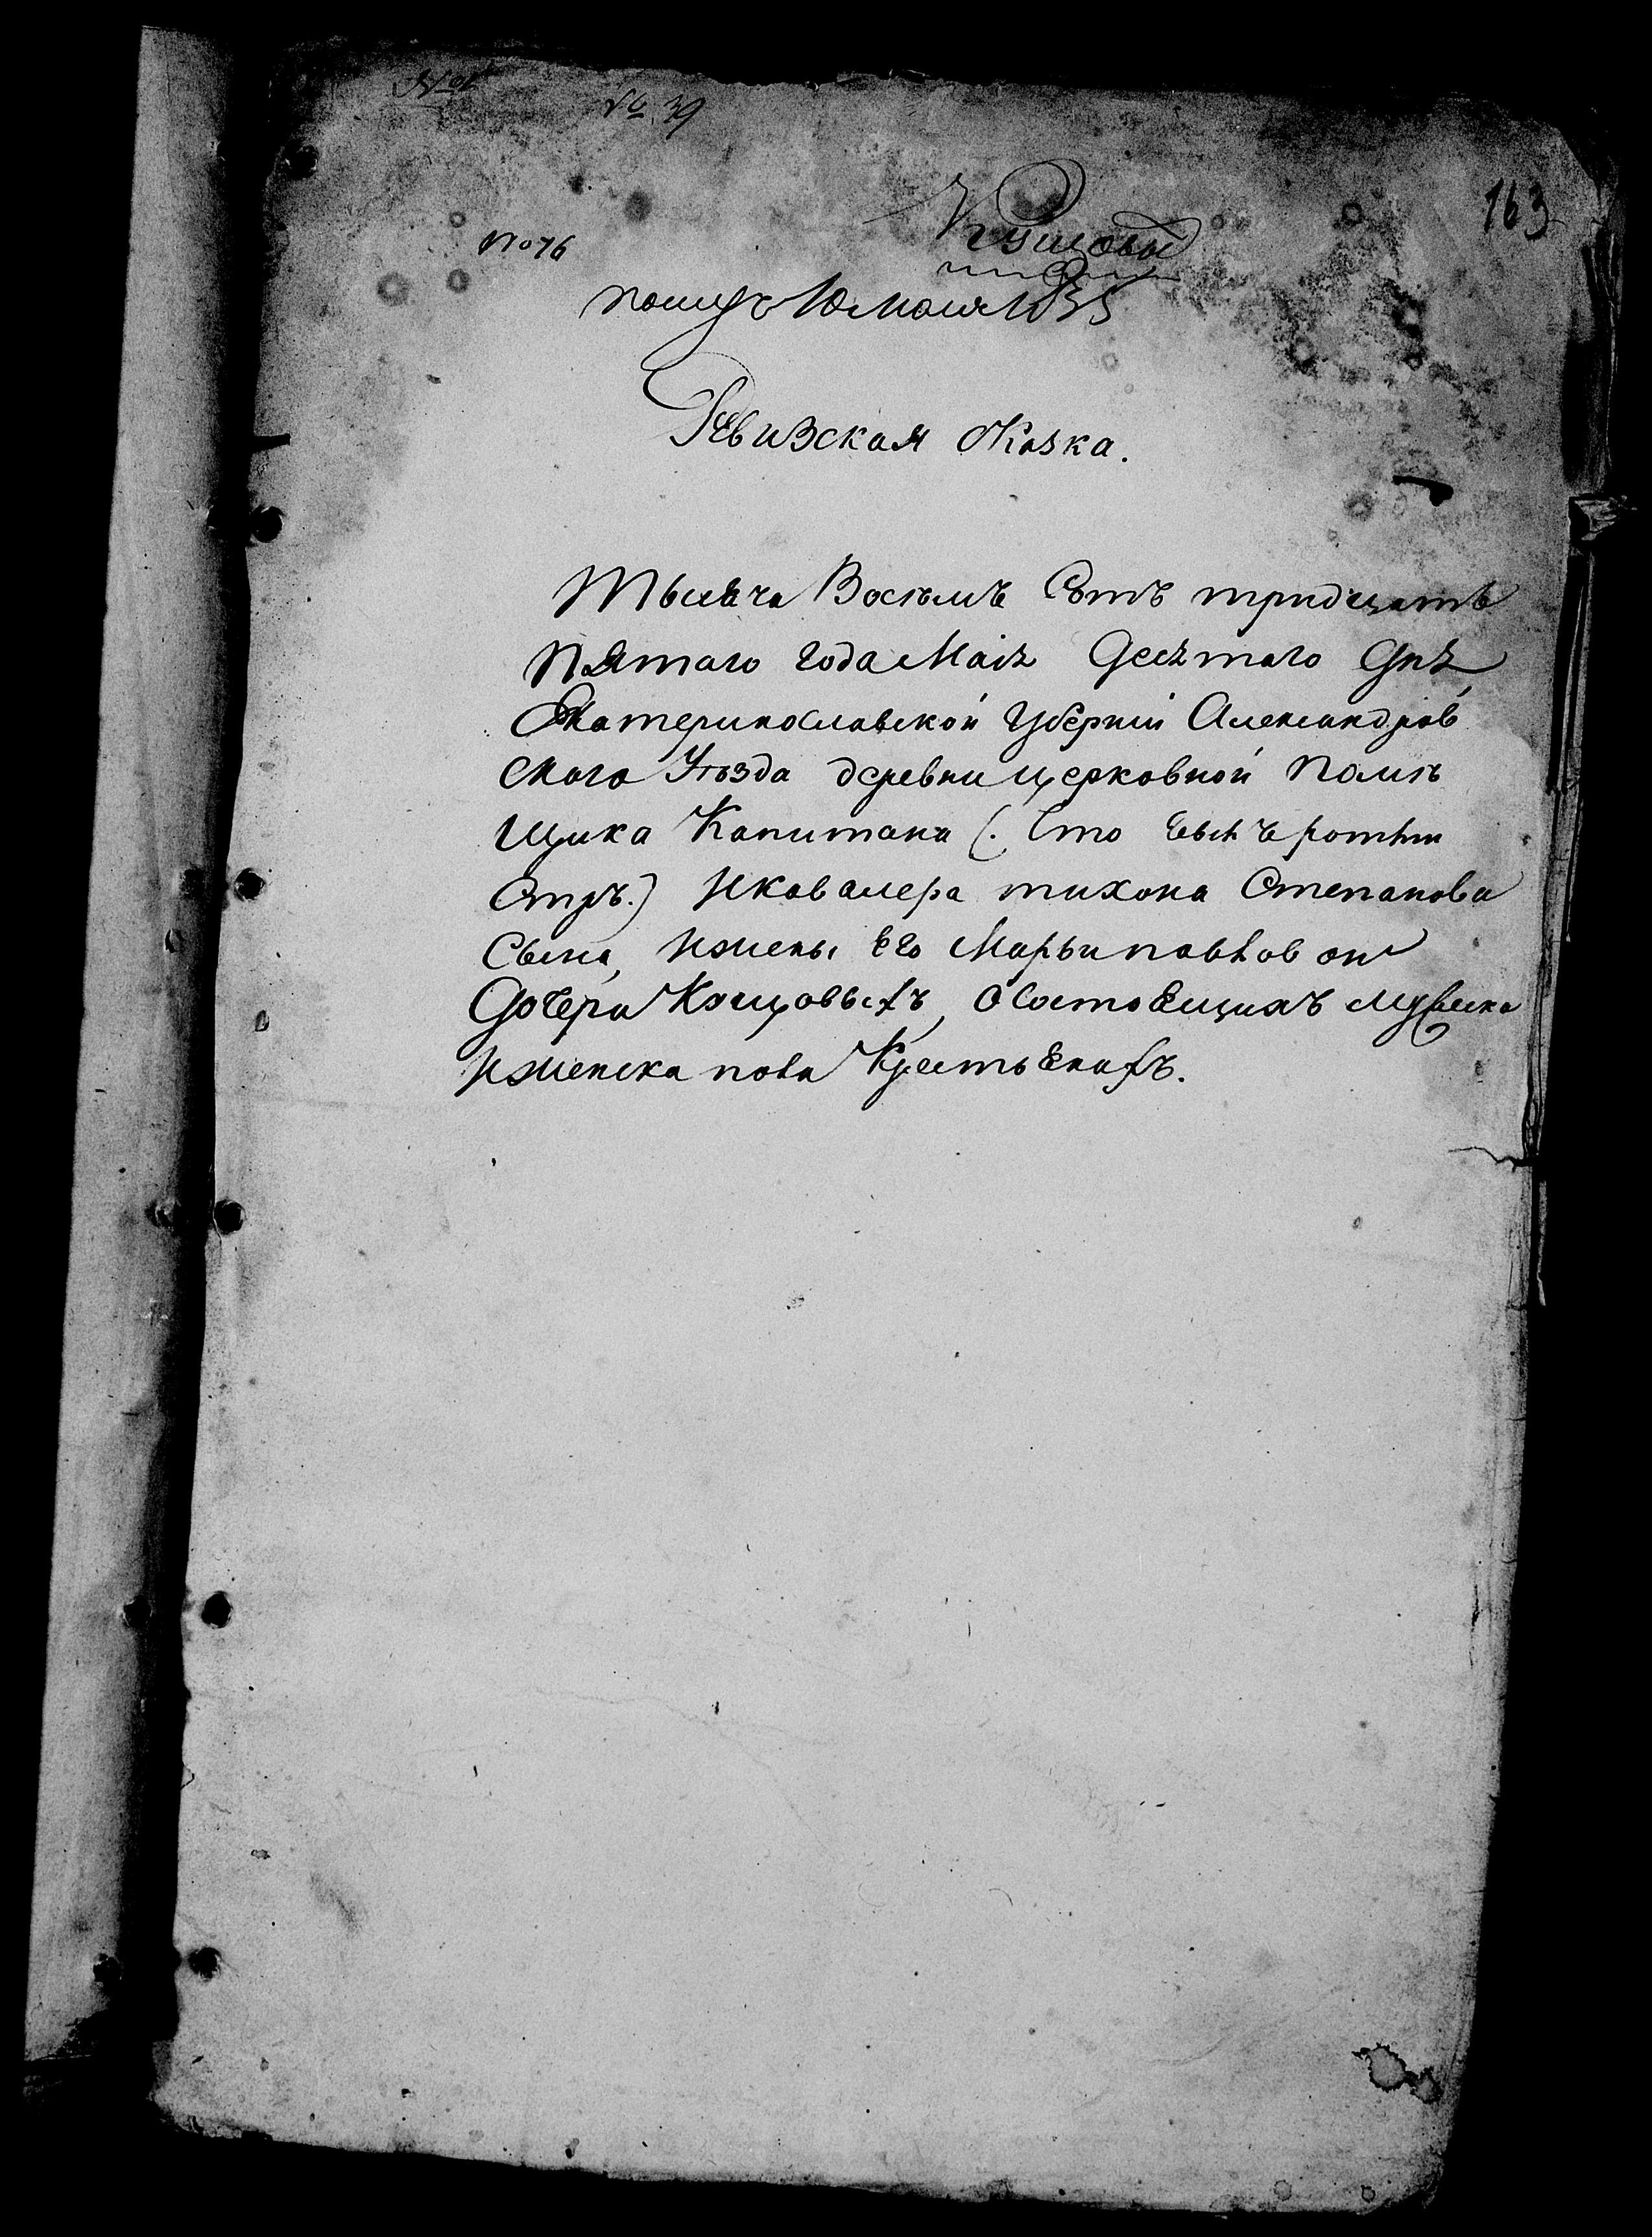 № 39
163
№ 76
Кущовы
получ 10 мая 1835
Ревизская Сказка.
Тысяча Восѣмъ Сотъ тридцать
пятаго года Маія Десятаго Дня
Екатеринославской Губерніи Александров
скаго Уѣзда деревни церковной Помѣ
щика Капитана (.
Икавалера тихона Степанова
Сына, ижены Его Марьи
Дочери Кущовыхъ, О Состоещихъ мужска
иженска пола Крестьенахъ.